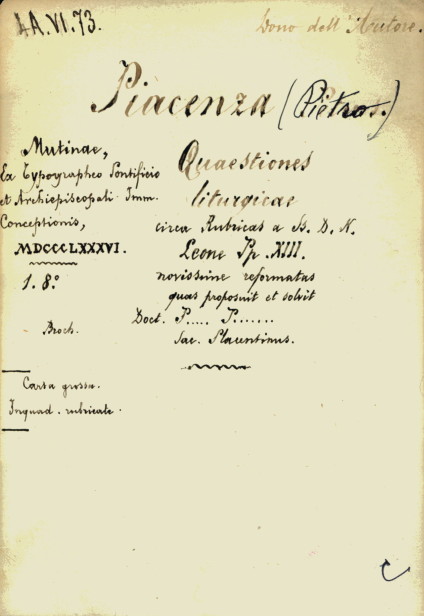 4A.VI.73.
Dono dell'Autore.
Piacenza (Pietro.)
Mutinae,
Ex Typographeo Pontificio
et Archiepiscopali Imm.
Conceptionis,
MDCCCLXXXVI.
1. 8.°
Broch.
Carta grossa.
Inquad. rubricate.
Quaestiones
liturgicae
circa Rubricas a SS. D. N.
Leone Pp. XIII.
novissime reformatas
quas proposuit et solvit
Doct. P..... P.......
Sac. Placentinus.